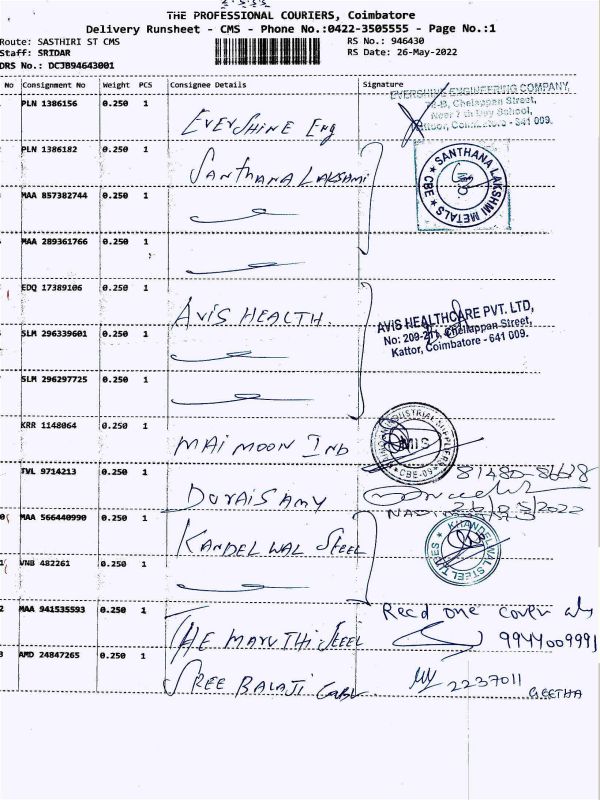 THE PROFESSIONAL COURIERS, Coimbatore
Delivery Runsheet - CMS - Phone No.:0422-3505555 - Page No.:1
Route: SASTHIRI ST CMS
RS No.: 946430
Staff: SRIDAR
RS Date: 26-May-2022
DRS No.: DCJB94643001
No Consignment No Weight PCS Consignee Details Signature
PLN 1386156 0.250 1 EVERSHINE Eng
EVERSHINE ENGINEERING COMPANY,
Chelappan Street,
School,
Kattoor, Coimbatore - 641 009.
PLN 1386182 0.250 1 SANTHANA LAKSHMI
SANTHANA LAKSHMI METALS CBE
MAA 857382744 0.250 1
MAA 289361766 0.250 1
EDQ 17389106 0.250 1 AVIS HEALTH.
AVIS HEALTHCARE PVT. LTD,
No: 209-211, Chellappan Street,
Kattor, Coimbatore - 641 009.
SLM 296339601 0.250 1
SLM 296297725 0.250 1
KRR 1148064 0.250 1 MAIMOON Ind
INDUSTRIAL SUPPLIERS
MIS
CBE-09
TVL 9714213 0.250 1 DURAISAMY
81485-8
26/05/2022
MAA 566440990 0.250 1 KANDELWAL STEEL
KHANDELWAL STEEL TUBES
VNB 482261 0.250 1
2 MAA 941535593 0.250 1 THE MARUTHI STEEL
Recd one cover
9944009991
3 AMD 24847265 0.250 1 SREE BALAJI
2237011
GEETHA